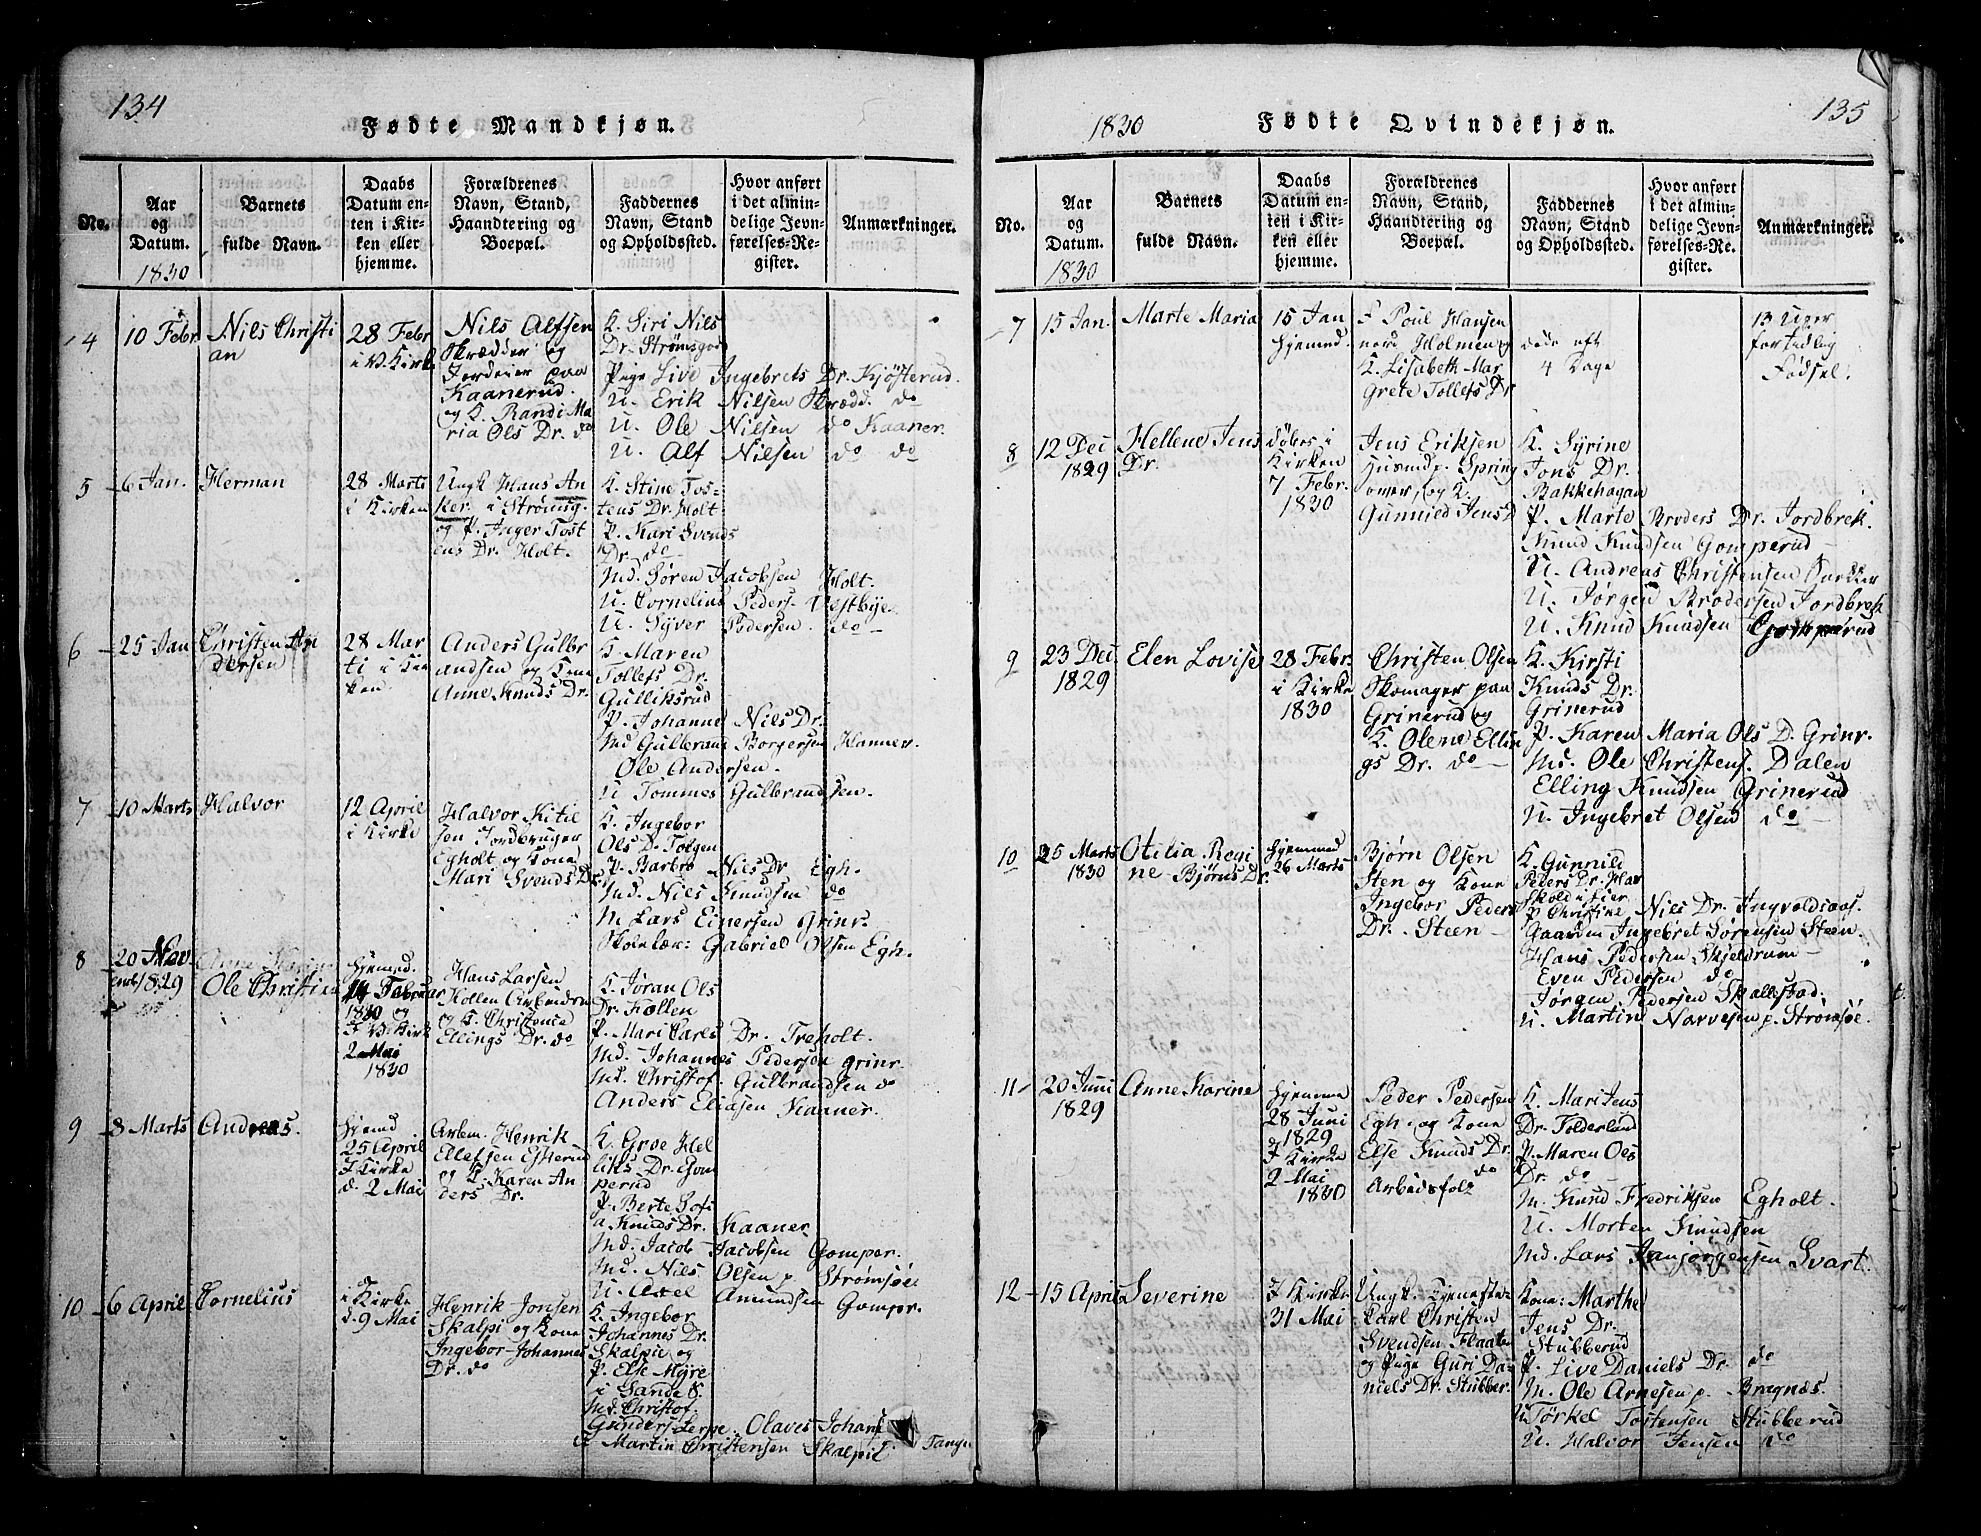 134
Fødte Mandkjøn.
No.
Aar
og
Datum.
1830
Barnets
fulde Navn.
Daabs
Datum en-
ten i Kir-
ken eller
hjemme.
Forældrenes
Navn, Stand,
Haandtering og
Boepæl.
Faddernes
Navn, Stand
og Opholdssted.
Hvor anført
i det almin-
delige Jevn-
førelses-Re-
gister.
Anmærkninger.
4
10 Febr
Nils Christi
an
28 Febr
i V. Kirk
Nils Alfsen
Skrædder og
Jordeier paa
Kaanerud
og K. Randi Ma
ria Ols Dr. do
K. Siri Nils
Dr. Strømsgod
Pige Live Ingebrets Dr. Kjøsterud.
U. Erik Nilsen Skrædd. do
U. Ole Nilsen do Kaaner.
U. Alf Nilsen do do
5
6 Jan.
Herman
28 Marti
i Kirken
Ungk Hans An
ker i Strømsg.
og P. Inger Tost
ens Dr. Holt.
K. Stine Tos-
tens Dr. Holt
P. Kari Svends
Dr. do
Md. Søren Jacobsen Holt.
U. Cornelius Peders- Vestbye
U. Syver Pedersen. do
6
25 Jan
Christen An
dersen
28 Mar
ti i Kir
ken.
Anders Gulbr
andsen og Kone
Anne Knuds Dr.
K. Maren
Tollefs Dr.
Gulliksrud
P. Johanne Nils Dr.
Md Gulbrand Borgersen Kanner.
Ole Andersen.
U Tommes Gulbrandsen.
7
10 Marts
Halvor
12 April
i Kirke
Halvor Kitil
sen Jordbruger
Egholt og Kone
Mari Svends Dr
K. Ingebor
Ols D. Tolgen
P. Barbro Nils Dr Egh.
Md. Nils Knudsen do
M Lars Einersen Grinr.
Skolelær: Gabriel Olsen Egh.
8
20 Nov
1829
Ole Christian
Hjemd.
14 Februar
1830 og
I V. Kirk
2 Mai
1830
Hans Larsen
Kollen Arbeidsm
og K. Christence
Ellings Dr. do
K. Joran Ols
Dr. Kollen
P. Mari Carls Dr. Treholt.
Md. Johannes Pedersen Grinr.
Md. Christof. Gulbrandsen do
Anders Eliasen Kaaner.
9
8 Marts
Andreas.
Hjemd
25 April
I Kirke
d. 2 Mai
Arbm. Henrik
Ellefsen Esterud
og K. Karen An
ders Dr.
K. Groe Hel
liks Dr. Gom
perud
P. Berte Sofi
a Knuds Dr. Kaaner
Md. Jacob Jacobsen Gomper.
Md. Nils Olsen p. Strømsøe.
U. Axel Amundsen Gompr.
10
6 April
Cornelius
i Kirke
d. 9 Mai
Henrik Jonsen
Skalpi og Kone
Ingebor Johannes
Dr. do
K. Ingebor
Johannes Dr.
Skalpie og
P. Else Myre
i Sande S.
Md. Christof.
Gunders Lerpe. Olaves Johans
Martin Christensen Skalpil. Tangn
1830
Fødte Qvindekjøn.
135
No.
Aar
og
Datum.
1830
Barnets
fulde Navn.
Daabs
Datum en-
ten i Kir-
ken eller
hjemme.
Forældrenes
Navn, Stand,
Haandtering og
Boepæl.
Faddernes
Navn, Stand
og Opholdssted.
Hvor anført
i det almin-
delige Jevn-
førelses-Re-
gister.
Anmærkninger.
7
15 Jan.
Marte Maria
15 Jan
hjemmd.
F Poul Hansen
nord Holmen og
K. Lisabeth Mar
Grete Tollefs Dr
døde eft
4 Dage
13 Uger
fortidlig
Fødsel.
8
12 Dec
1829
Hellene Jens
Dr.
døbes i
Kirken
7 Febr.
1830
Jens Eriksen
Husmd p. Spring
over, og K.
Gunnild Jens D
K. Syrine
Jons Dr.
Bakkehagan
P. Marte Broders Dr. Jordbrek.
Knud Knudsen Gomperud
U. Andreas Christensen
U. Jørgen Brodersen Jordbrek
U. Knud Knudsen Gomperud
9
23 Dec
1829
Elen Lovise
28 Febr.
i Kirke
1830
Christen Olsen
Skomager paa
Grinerud og
K. Olene Ellin
gs Dr. do
K. Kirsti
Knuds Dr.
Grinerud
P. Karen Maria Ols D. Grinr.
Md. Ole Christens. Dalen
Elling Knudsen Grinerud
U. Ingebret Olsen do
10
25 Marts
1830
Otilia Regi
ne Bjørns Dr.
hjemmed
26 Marts
Bjørn Olsen
Sten og Kone
Ingebor Peders
Dr. Steen
K. Gunnild
Peders Dr. Hav
skold i Lier
P Christine Nils Dr. Ingvoldsaas.
Gaardm Ingebret Sørensen Steen.
Hans Pedersen Skjeldrum
Even Pedersen do
Jørgen Pedersen Skallestad.
U. Martin Narvesen p. Strømsøe.
11
20 Juni
1829
Anne Karine
hjemme
28 Juni
1829
I Kirke
2 Mai
1830
Peder Pedersen
Egh. og Kone
Else Knuds Dr.
do
Arbeidsfolk
K. Mari Jens
Dr. Tolderlund
P. Maren Ols
Dr. do
M. Knud Fredriksen Egholt.
U. Morten Knudsen
Md. Lars Janjørgensen Svart.
12
15 April
Severine
I Kirke
31 Mai
Ungk. Tjenestek.
Carl Christen
Svendsen Flaate
og Pige Guri Da-
niels Dr. Stubber.
Kone: Marthe
Jens Dr.
Stubberud
P. Live Daniels Dr. do
M. Ole Arnesen p. Bragnæs.
U Tørkel Tostensen Stubberud
U. Halvor Jensen do